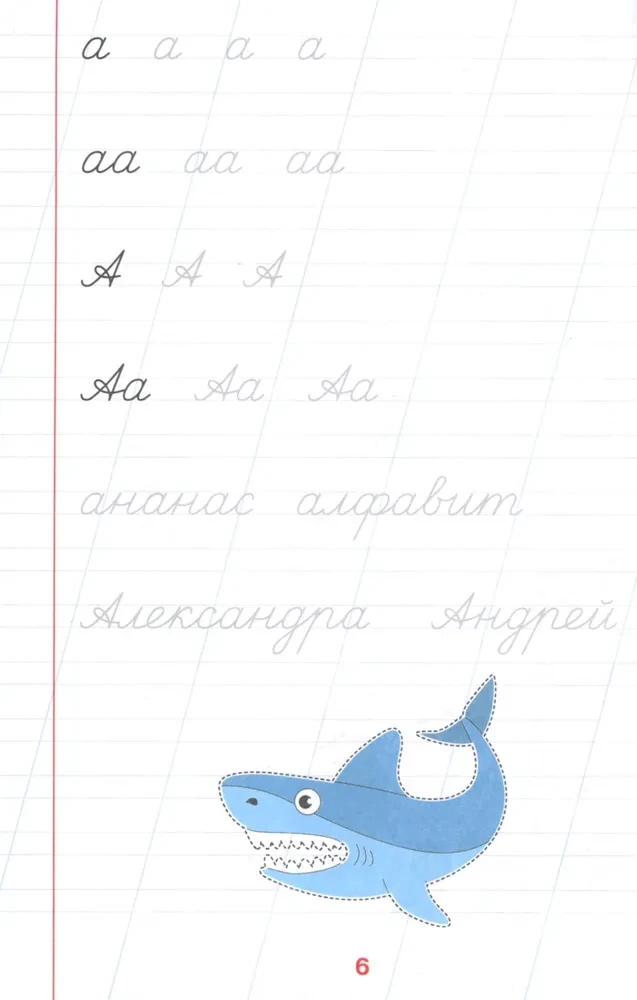 а а а а
аа аа аа
А А А
Аа Аа Аа
ананас алфавит
Александра Андрей
6